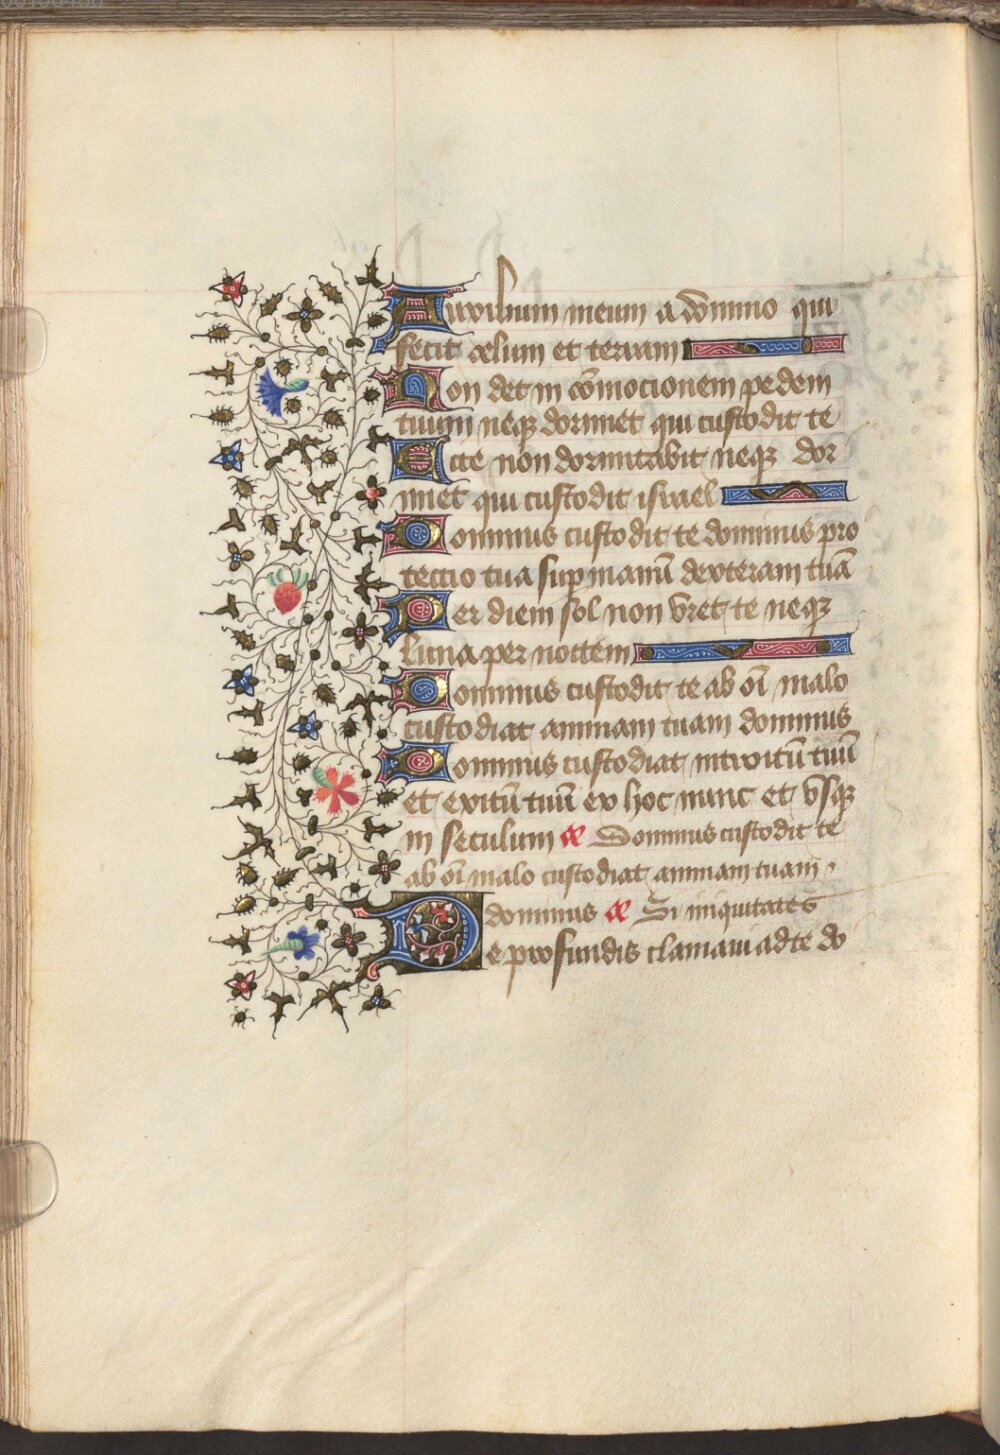 Auxilium meum a domino qui
fecit celum et terram
Non det in cōmocionem pedem
tuum neqꝫ dormiet qui custodit te
Ecce non dormitabit neqꝫ dor
miet qui custodit israel
Dominus custodit te dominus pro
tectio tua sup manū dexteram tuā
Per diem sol non vret te neqꝫ
luna per noctem
Dominus custodit te ab oī malo
custodiat animam tuam dominus
Dominus custodiat introitū tuū
et exitū tuū ex hoc nunc et vsqꝫ
in seculum Dominus custodit te
ab oī malo custodiat animam tuam
dominus Si iniquitates
De profundis clamaui ad te do